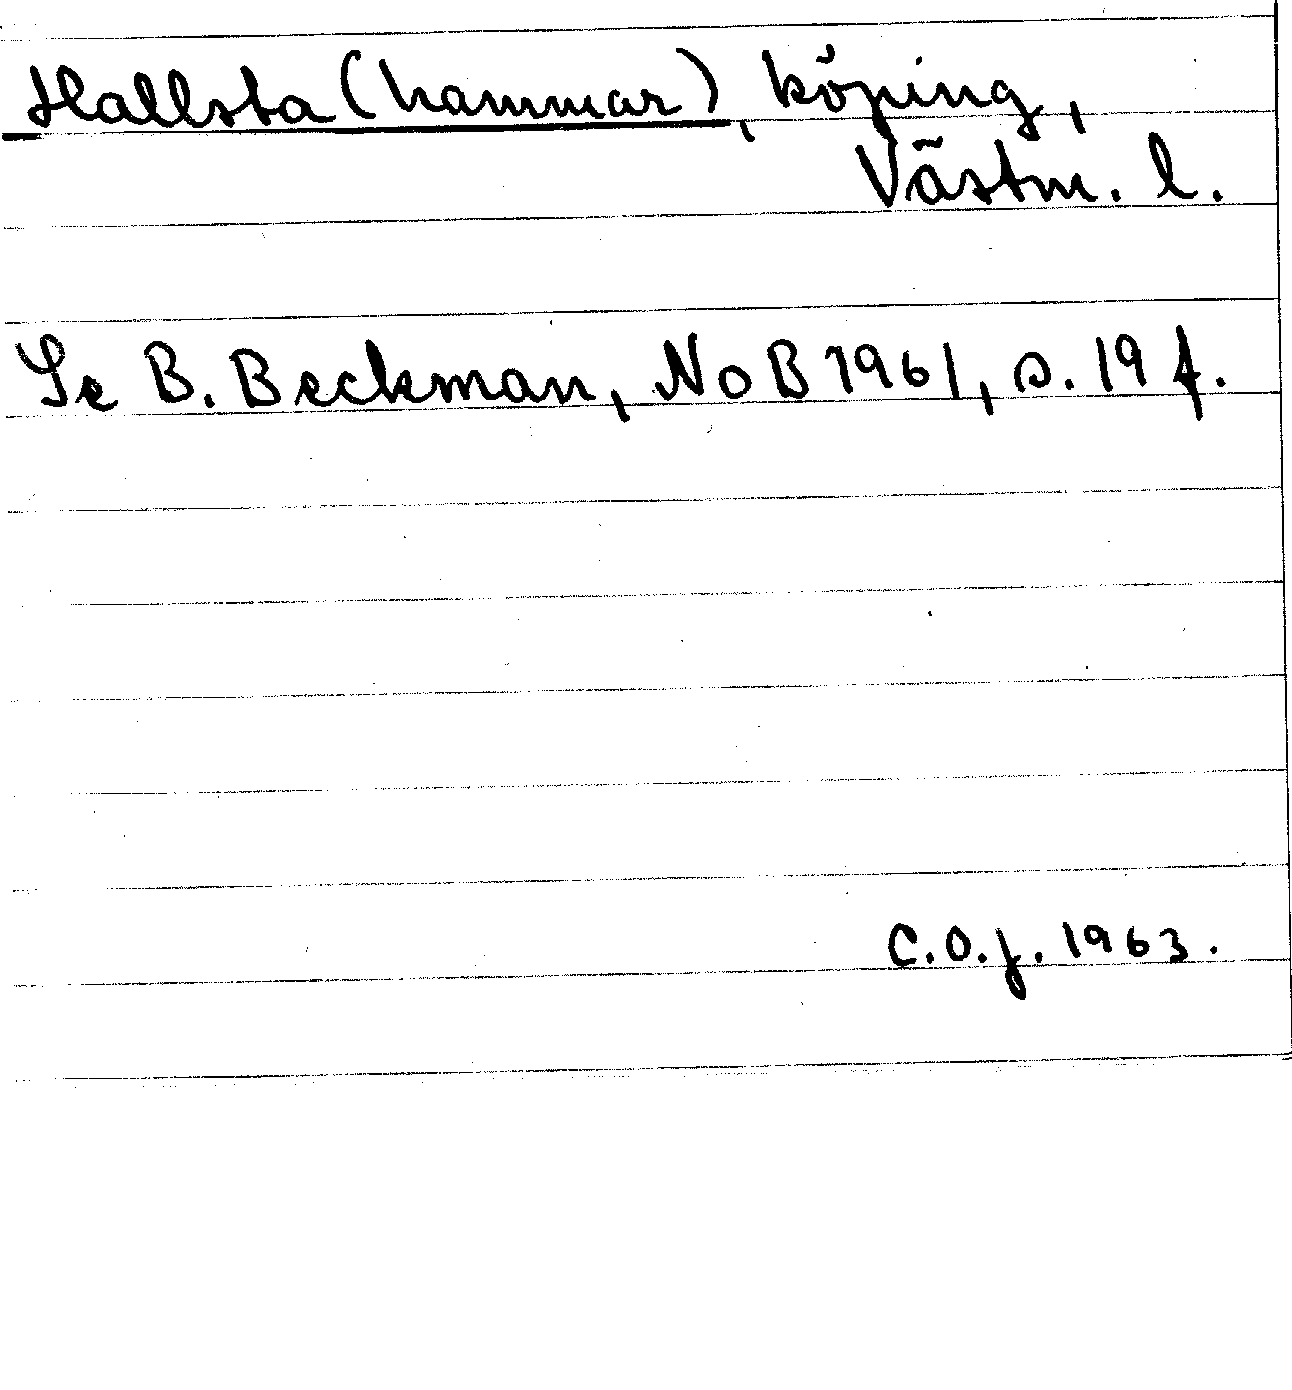 Hallsta(hammar), köping,
Västm. l.
Se B. Beckman, NoB 1961, s. 19 f.
C.O.J. 1963.